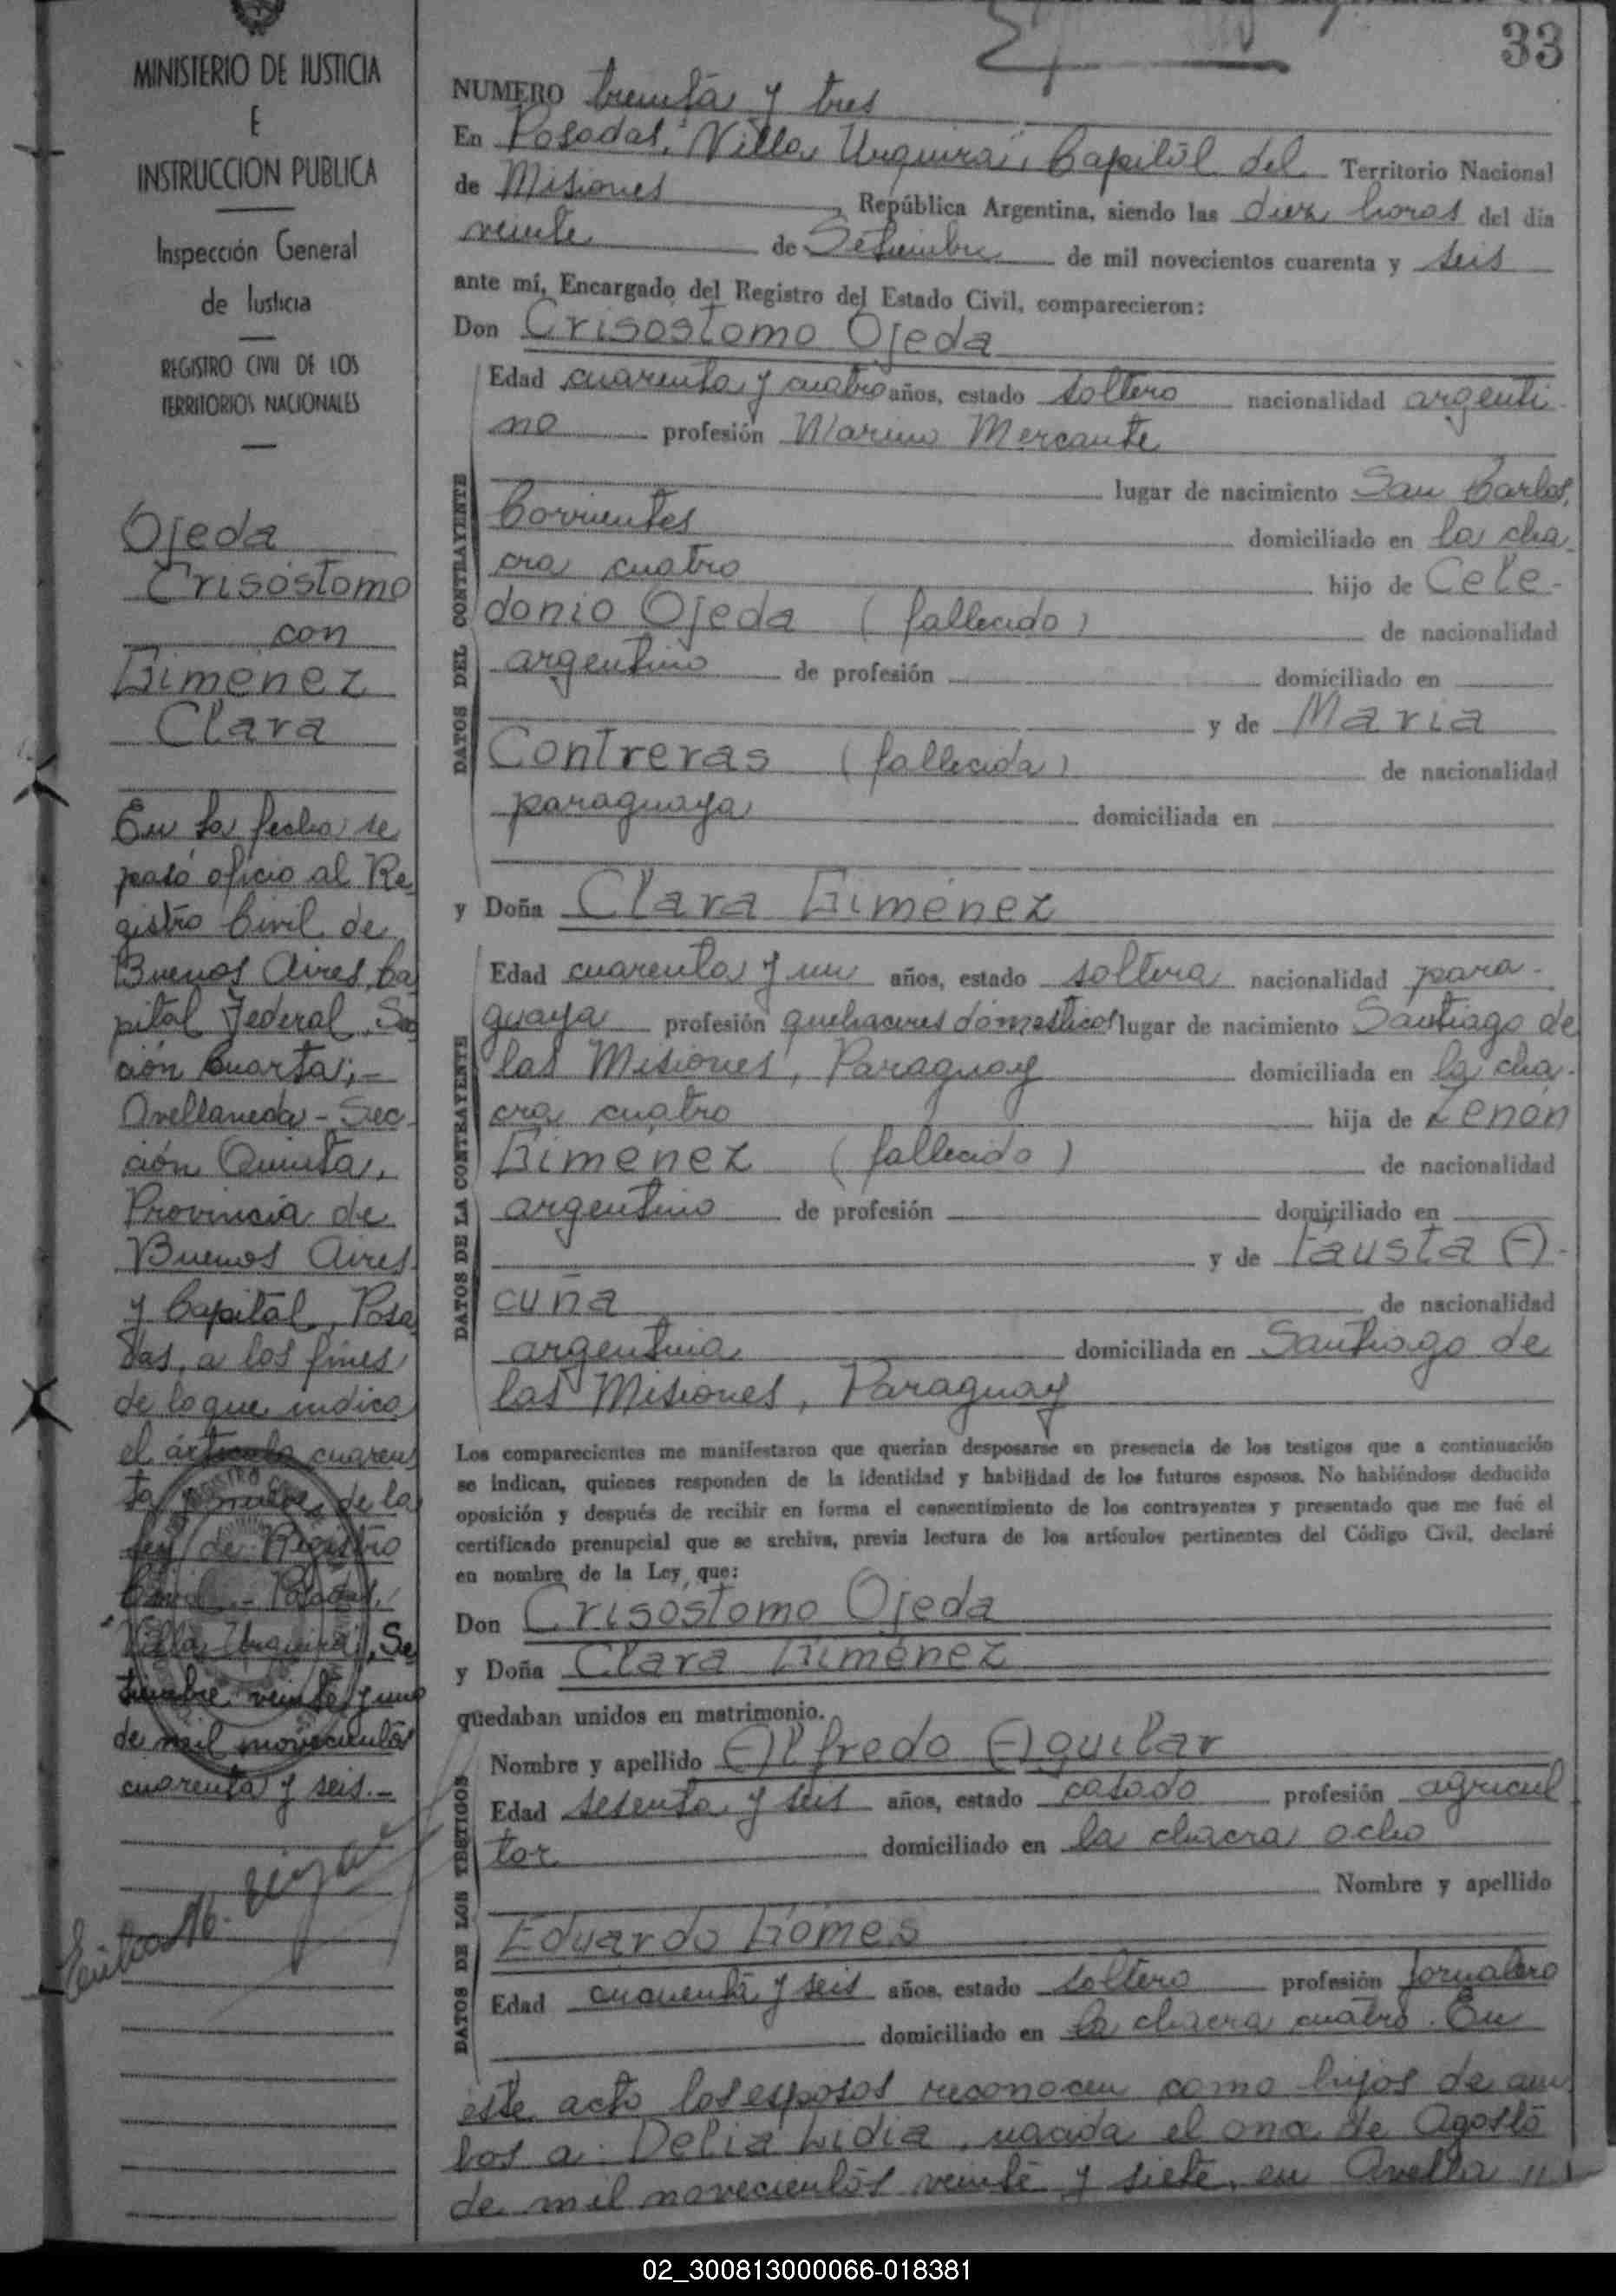 33
MINISTERIO DE JUSTICIA
E
INSTRUCCION PUBLICA
Inspección General
de Justicia
REGISTRO CIVIL DE LOS
TERRITORIOS NACIONALES
Ojeda
Crisóstomo
con
Giménez
Clara
En la fecha se
pasó oficio al Re
gistro Civil de
Buenos Aires, Ca
pital Federal, Sec
ción Cuarta;-
Avellaneda - Sec
ción Quinta,
Provincia de
Buenos Aires
y Capital, Posa
das, a los fines
de lo que indica
el artículo cuaren
ta y nueve de la
ley de Registro
Civil.- Posadas,
Villa Urquiza, Se
tiembre veinte y uno
de mil novecientos
cuarenta y seis.-
NUMERO treinta y tres
En Posadas, Villa Urquiza, Capital del Territorio Nacional
de Misiones, República Argentina, siendo las diez horas del día
veinte de Setiembre de mil novecientos cuarenta y seis
ante mí, Encargado del Registro del Estado Civil, comparecieron:
Don Crisóstomo Ojeda
DATOS DEL CONTRAYENTE
Edad cuarenta y cuatro años, estado soltero nacionalidad argenti
no profesión Marino Mercante
lugar de nacimiento San Carlos,
Corrientes domiciliado en la cha
cra cuatro hijo de Cele-
donio Ojeda (fallecido) de nacionalidad
argentino de profesión domiciliado en
y de María
Contreras (fallecida) de nacionalidad
paraguaya domiciliada en
y Doña Clara Giménez
DATOS DE LA CONTRAYENTE
Edad cuarenta y un años, estado soltera nacionalidad para-
guaya profesión quehaceres domésticos lugar de nacimiento Santiago de
las Misiones, Paraguay domiciliada en la cha-
cra cuatro hija de Zenón
Giménez (fallecido) de nacionalidad
argentino de profesión domiciliado en
y de Fausta A-
cuña de nacionalidad
argentina domiciliada en Santiago de
las Misiones, Paraguay
Los comparecientes me manifestaron que querían desposarse en presencia de los testigos que a continuación
se indican, quienes responden de la identidad y habilidad de los futuros esposos. No habiéndose deducido
oposición y después de recibir en forma el consentimiento de los contrayentes y presentado que me fué el
certificado prenupcial que se archiva, previa lectura de los artículos pertinentes del Código Civil, declaré
en nombre de la Ley, que:
Don Crisóstomo Ojeda
y Doña Clara Giménez
quedaban unidos en matrimonio.
DATOS DE LOS TESTIGOS
Nombre y apellido Alfredo Aguilar
Edad sesenta y seis años, estado casado profesión agricul
tor domiciliado en la chacra ocho
Nombre y apellido
Eduardo Gomes
Edad cuarenta y seis años, estado soltero profesión jornalero
domiciliado en la chacra cuatro. En
este acto los esposos reconocen como hijos de am
bos a: Delia Lidia, nacida el once de Agosto
de mil novecientos veinte y siete, en Avella //
02_300813000066-018381